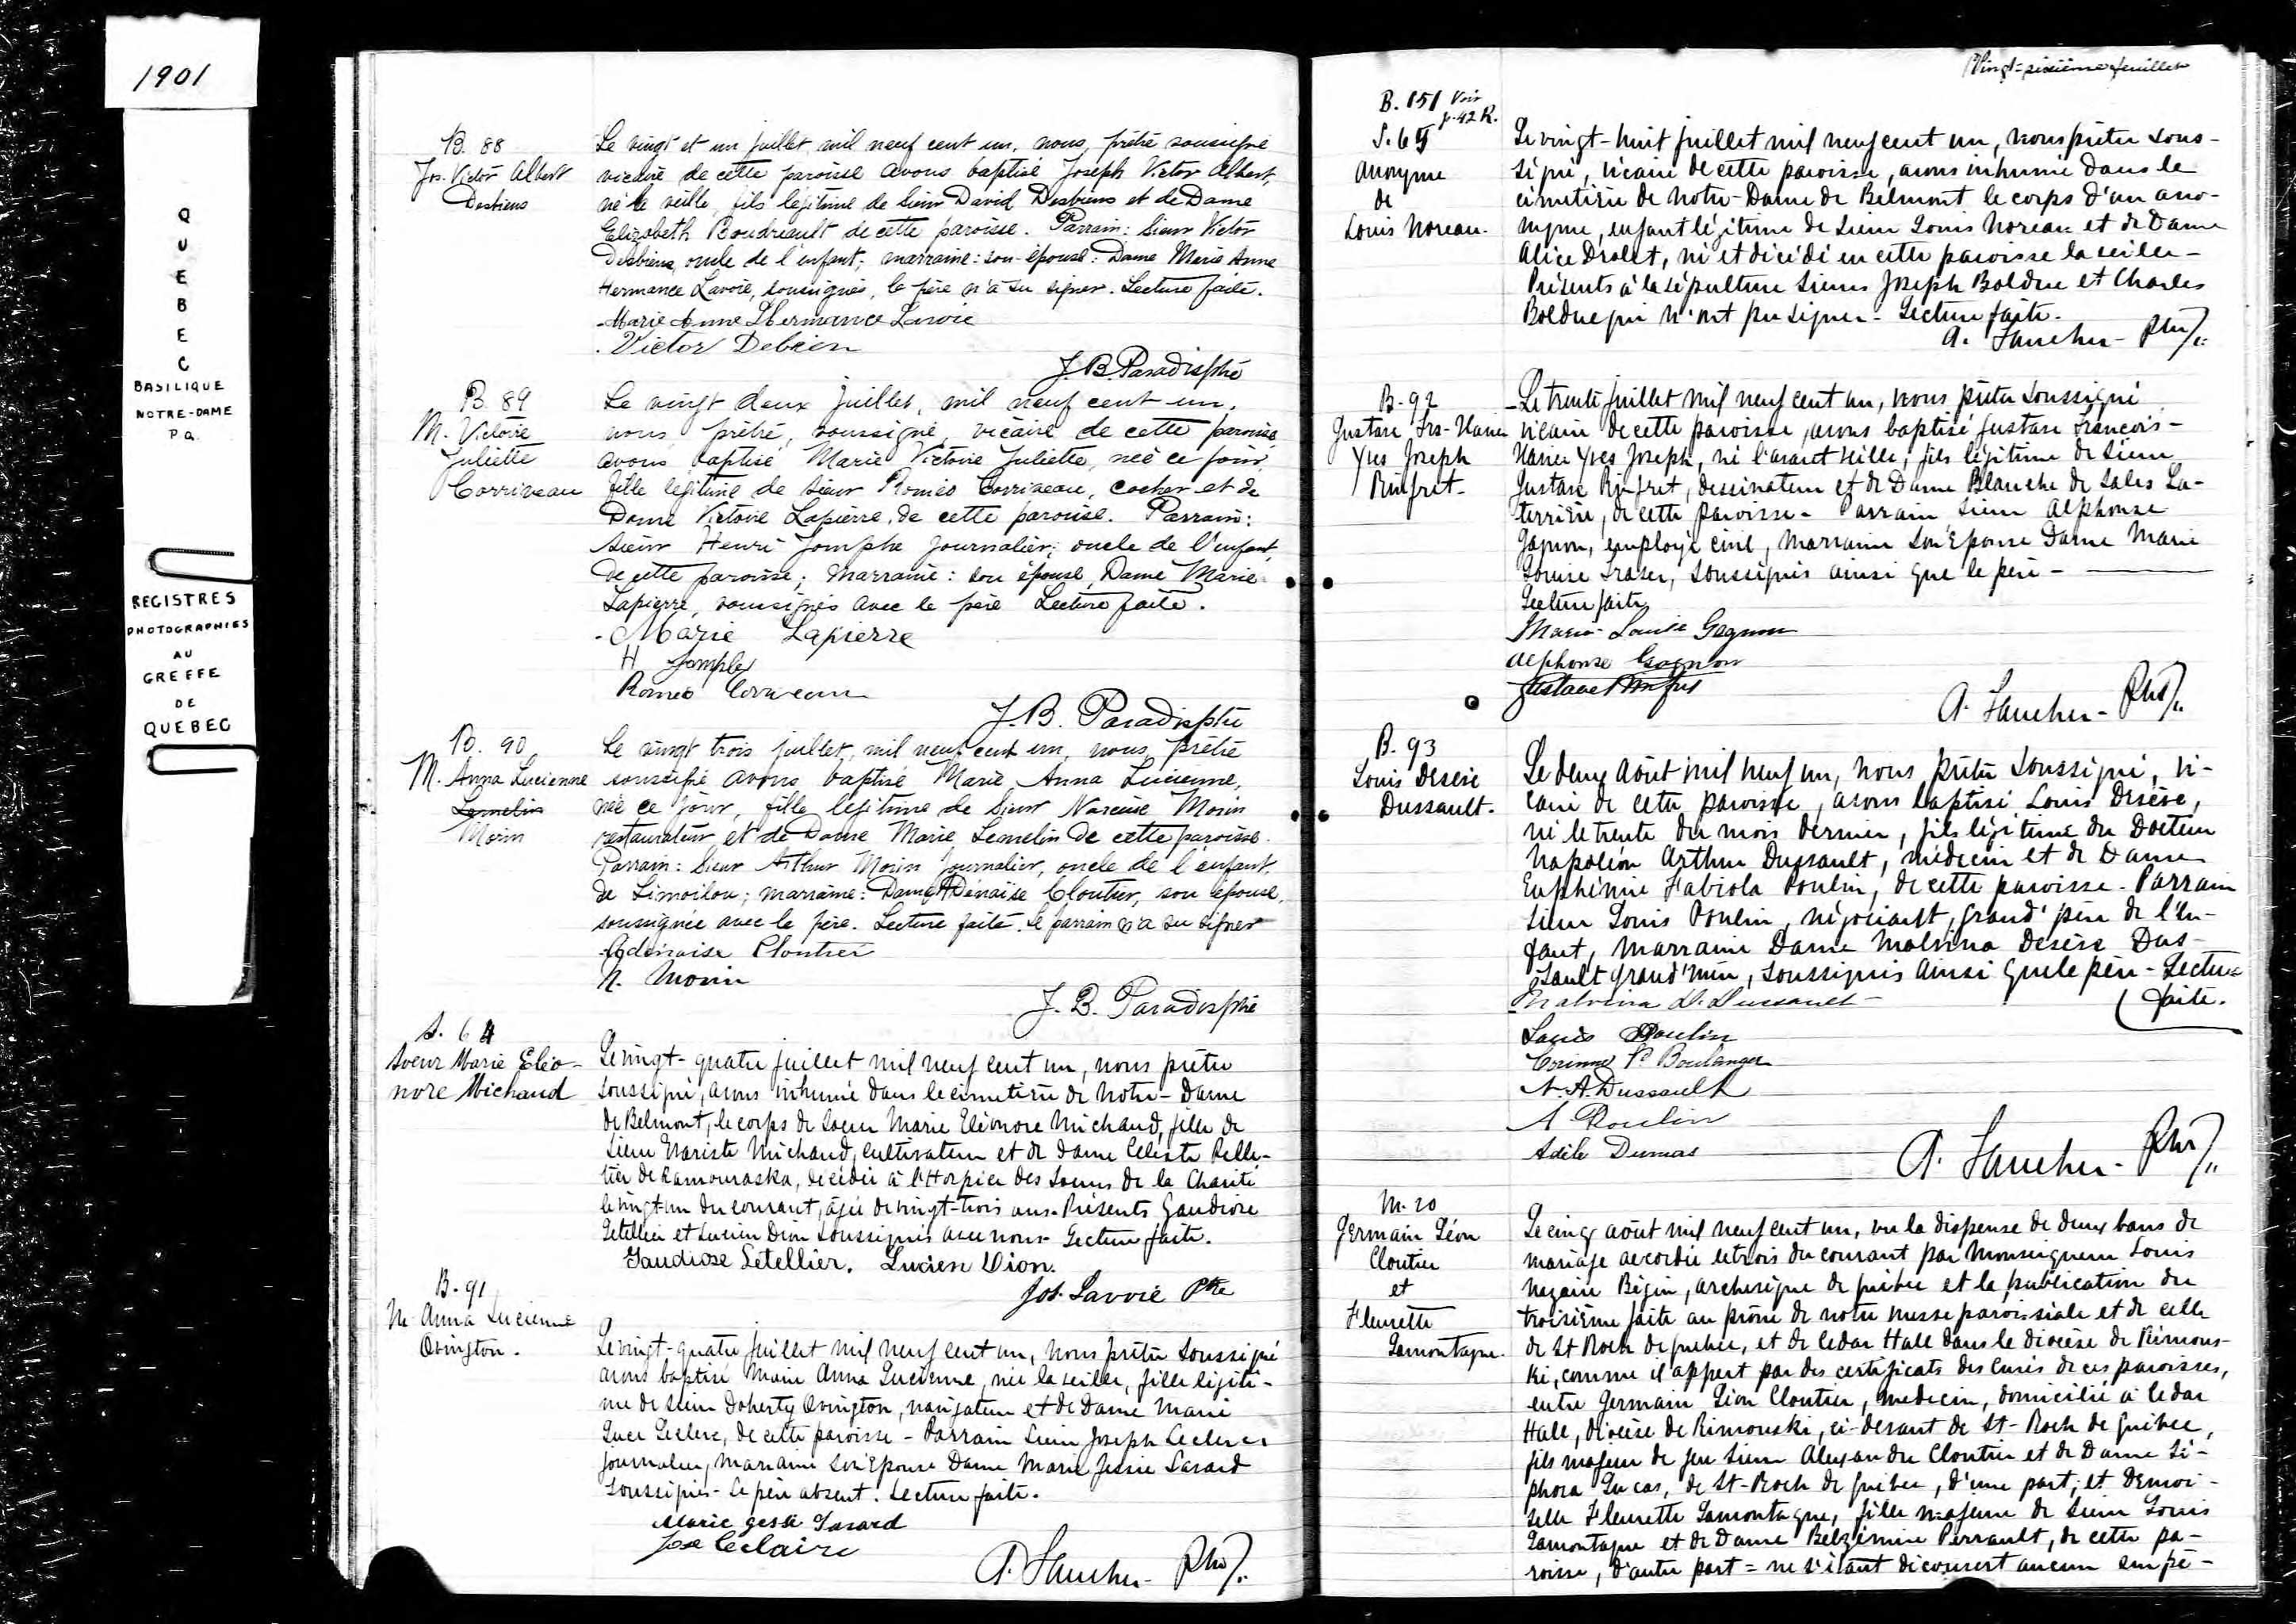 1901
QUEBEC
BASILIQUE
NOTRE-DAME
P.Q.
REGISTRES
PHOTOGRAPHIES
AU
GREFFE
DE
QUEBEC
B. 88
Jos. Victor Albert
Desbiens
Le vingt et un juillet mil neuf cent un, nous, prêtre soussigné
vicaire de cette paroisse avons baptisé Joseph Victor Albert,
né la veille, fils légitime de Sieur David Desbiens et de Dame
Elizabeth Boudreault de cette paroisse. Parrain: Sieur Victor
Desbiens, oncle de l'enfant; marraine: son épouse: Dame Marie Anne
Hermance Lavoie, soussignés, le père n'a su signer. Lecture faite.
Marie Anne Hermance Lavoie
Victor Debien
J. B. Paradis ptre
B. 89
M. Victoire
Juliette
Corriveau
Le vingt deux juillet, mil neuf cent un,
nous prêtre, soussigné, vicaire de cette paroisse
avons baptisé Marie Victoire Juliette, née ce jour,
fille légitime de Sieur Roméo Corriveau, cocher et de
Dame Victoire Lapierre, de cette paroisse. Parrain:
Sieur Henri Jomphe journalier, oncle de l'enfant,
de cette paroisse; marraine: son épouse, Dame Marie
Lapierre, soussignés avec le père Lecture faite.
Marie Lapierre
H Jomphe
Romeo Corriveau
J. B. Paradis ptre
B. 90
M. Anna Lucienne
Lemelin
Morin
Le vingt trois juillet, mil neuf cent un, nous, prêtre
soussigné avons baptisé Marie Anna Lucienne,
née ce jour, fille légitime de Sieur Narcisse Morin
restaurateur et de Dame Marie Lemelin de cette paroisse.
Parrain: Sieur Arthur Morin journalier, oncle de l'enfant,
de Limoilou; marraine: Dame Adénaïse Cloutier, son épouse,
soussignée avec le père. Lecture faite. Le parrain n'a su signer
Adénaise Cloutier
N. Morin
J. B. Paradis ptre
S. 64
Soeur Marie Eléo-
nore Michaud
Le vingt-quatre juillet mil neuf cent un, nous prêtre
soussigné, avons inhumé dans le cimetière de Notre-Dame
de Belmont, le corps de Soeur Marie Eléonore Michaud, fille de
Sieur Evariste Michaud, cultivateur et de Dame Celeste Pelle-
tier de Kamouraska, décédée à l'Hospice des Soeurs de la Charité
le vingt-un du courant, âgée de vingt-trois ans. Présents Gaudiose
Letellier et Lucien Dion soussignés avec nous. Lecture faite.
Gaudiose Letellier. Lucien Dion.
Jos. Lavoie Ptre
B. 91
M. Anna Lucienne
Ovington.
Le vingt-quatre juillet mil neuf cent un, nous prêtre soussigné
avons baptisé Marie Anna Lucienne, née la veille, fille légiti-
me de Sieur Doherty Ovington, navigateur et de Dame Marie
Luce Leclerc, de cette paroisse - Parrain Sieur Joseph Leclerc
journalier, marraine son épouse Dame Marie Jessie Savard
soussignés - Le père absent. Lecture faite.
Marie Jessie Savard
Jos Leclaire
A. Faucher - Ptre
Vingt-sixième feuillet
B. 151 Voir
f. 42 R.
S. 65
Anonyme
de
Louis Noreau.
Le vingt-huit juillet mil neuf cent un, nous prêtre sous-
signé, vicaire de cette paroisse, avons inhumé dans le
cimetière de Notre-Dame de Belmont le corps d'un ano-
nyme, enfant légitime de Sieur Louis Noreau et de Dame
Alice Drolet, né et décédé en cette paroisse la veille -
Présents à la sépulture Sieurs Joseph Bolduc et Charles
Bolduc qui n'ont pu signer - Lecture faite.
A. Faucher - Ptre
B. 92
Gustave Frs-Xavier
Yves Joseph
Rinfret.
Le trente juillet mil neuf cent un, nous prêtre soussigné
vicaire de cette paroisse, avons baptisé Gustave François-
Xavier Yves Joseph, né l'avant veille, fils légitime de Sieur
Gustave Rinfret, dessinateur et de Dame Blanche de Sales La-
terrière, de cette paroisse - Parrain Sieur Alphonse
Gagnon, employé civil, marraine son épouse Dame Marie
Louise Fraser, soussignés ainsi que le père -
Lecture faite
Marie-Louise Gagnon
Alphonse Gagnon
Gustave Rinfret
A. Faucher - Ptre
B. 93
Louis Désiré
Dussault.
Le deux août mil neuf un, nous prêtre soussigné, vi-
caire de cette paroisse, avons baptisé Louis Désiré,
né le trente du mois dernier, fils légitime du Docteur
Napoléon Arthur Dussault, médecin et de Dame
Euphémie Fabiola Poulin, de cette paroisse - Parrain
Sieur Louis Poulin, négociant, grand'père de l'en-
fant, marraine Dame Malvina Désiré Dus-
sault grand'mère, soussignés ainsi que le père - Lecture
faite.
Malvina D. Dussault
Louis Poulin
Corinne P. Boulanger
N. A. Dussault
A Poulin
Adèle Dumas
A. Faucher - Ptre
M. 20
Germain Léon
Cloutier
et
Fleurette
Lamontagne.
Le cinq août mil neuf cent un, vu la dispense de deux bans de
mariage accordée le trois du courant par Monseigneur Louis
Nazaire Bégin, archevêque de Québec et la publication du
troisième faite au prône de notre messe paroissiale et de celle
de St Roch de Québec, et de Cedar Hall dans le diocèse de Rimous-
ki, comme il appert par des certificats des Curés de ces paroisses,
entre Germain Léon Cloutier, médecin, domicilié à Cedar
Hall, diocèse de Rimouski, ci-devant de St-Roch de Québec,
fils majeur de feu Sieur Alexandre Cloutier et de Dame Sé-
phora Lucas, de St-Roch de Québec, d'une part; et Demoi-
selle Fleurette Lamontagne, fille majeure de Sieur Louis
Lamontagne et de Dame Belzémire Perrault, de cette pa-
roisse, d'autre part = ne s'étant découvert aucun empê-